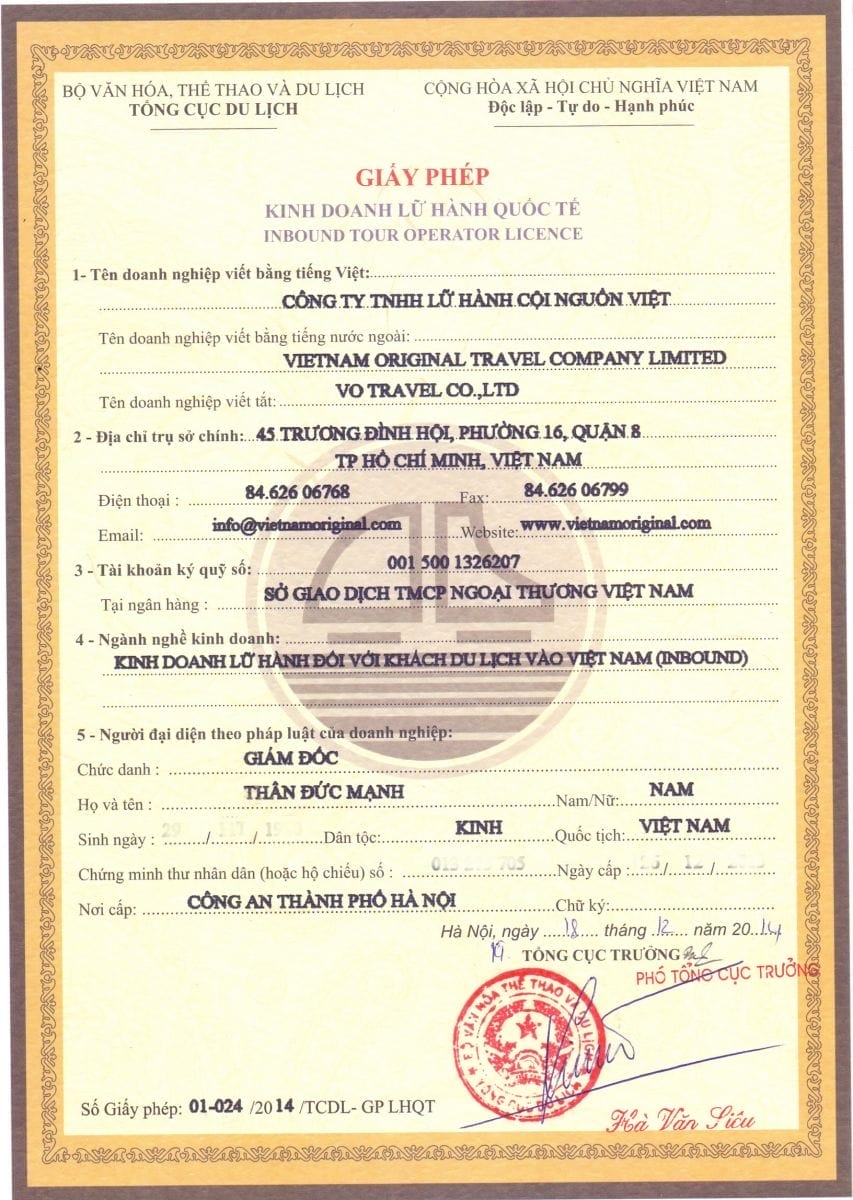 BỘ VĂN HÓA, THỂ THAO VÀ DU LỊCH
TỔNG CỤC DU LỊCH
CỘNG HÒA XÃ HỘI CHỦ NGHĨA VIỆT NAM
Độc lập - Tự do - Hạnh phúc
GIẤY PHÉP
KINH DOANH LỮ HÀNH QUỐC TẾ
INBOUND TOUR OPERATOR LICENCE
1- Tên doanh nghiệp viết bằng tiếng Việt:
CÔNG TY TNHH LỮ HÀNH CỘI NGUỒN VIỆT
Tên doanh nghiệp viết bằng tiếng nước ngoài:
VIETNAM ORIGINAL TRAVEL COMPANY LIMITED
Tên doanh nghiệp viết tắt: VO TRAVEL CO.,LTD
2 - Địa chỉ trụ sở chính: 45 TRƯƠNG ĐÌNH HỘI, PHƯỜNG 16, QUẬN 8
TP HỒ CHÍ MINH, VIỆT NAM
Điện thoại : 84.626 06768 Fax: 84.626 06799
Email: info@vietnamoriginal.com Website: www.vietnamoriginal.com
3 - Tài khoản ký quỹ số: 001 500 1326207
Tại ngân hàng : SỞ GIAO DỊCH TMCP NGOẠI THƯƠNG VIỆT NAM
4 - Ngành nghề kinh doanh:
KINH DOANH LỮ HÀNH ĐỐI VỚI KHÁCH DU LỊCH VÀO VIỆT NAM (INBOUND)
5 - Người đại diện theo pháp luật của doanh nghiệp:
Chức danh : GIÁM ĐỐC
Họ và tên : THÂN ĐỨC MẠNH Nam/Nữ: NAM
Sinh ngày : / / Dân tộc: KINH Quốc tịch: VIỆT NAM
Chứng minh thư nhân dân (hoặc hộ chiếu) số : Ngày cấp : / 12 /
Nơi cấp: CÔNG AN THÀNH PHỐ HÀ NỘI Chữ ký:
Hà Nội, ngày 18 tháng 12 năm 2014
TỔNG CỤC TRƯỞNG
PHÓ TỔNG CỤC TRƯỞNG
BỘ VĂN HÓA THỂ THAO VÀ DU LỊCH
TỔNG CỤC DU LỊCH
Số Giấy phép: 01-024 /2014 /TCDL- GP LHQT
Hà Văn Siêu